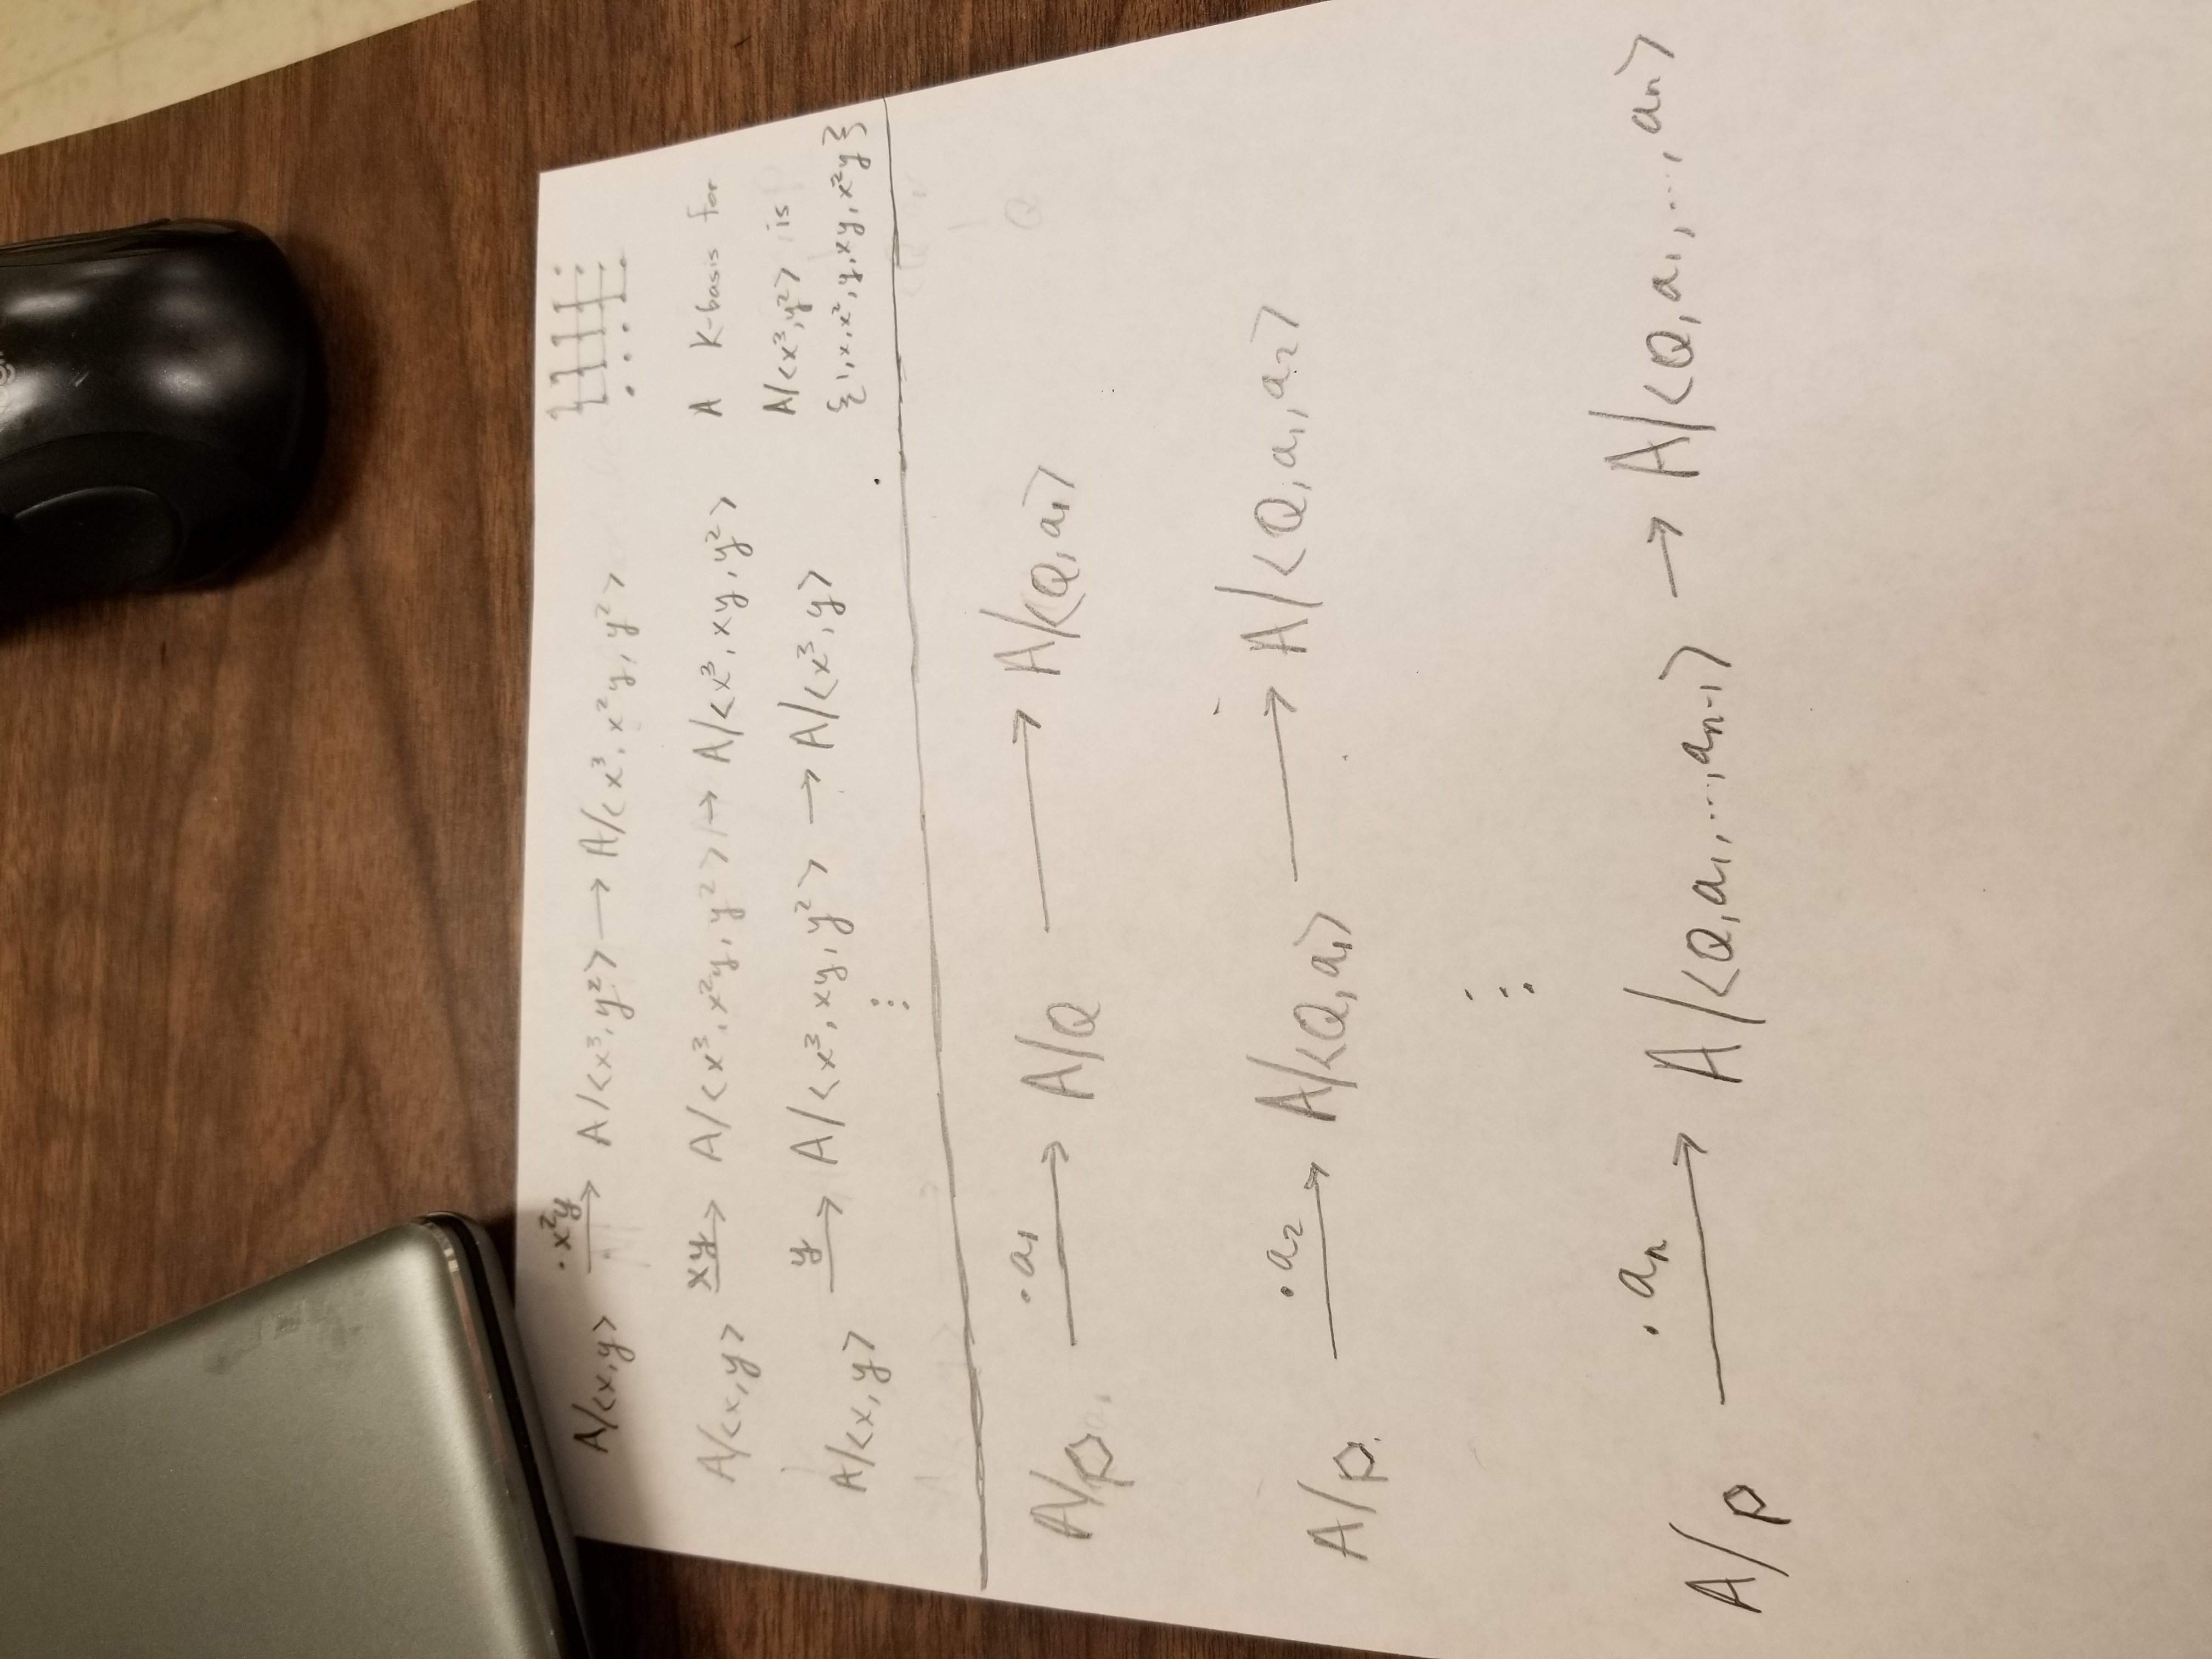 A/<x,y> ·x²y→ A/<x³,y²> → A/<x³,x²y,y²>
A/<x,y> xy→ A/<x³,x²y,y²> → A/<x³,xy,y²>
A/<x,y> y→ A/<x³,xy,y²> → A/<x³,y>
⋮
A K-basis for
A/<x³,y²> is
{1,x,x²,y,xy,x²y}
A/p ·a₁→ A/Q → A/<Q,a₁>
A/p ·a₂→ A/<Q,a₁> → A/<Q,a₁,a₂>
⋮
A/p ·aₙ→ A/<Q,a₁,...,aₙ₋₁> → A/<Q,a₁,...,aₙ>